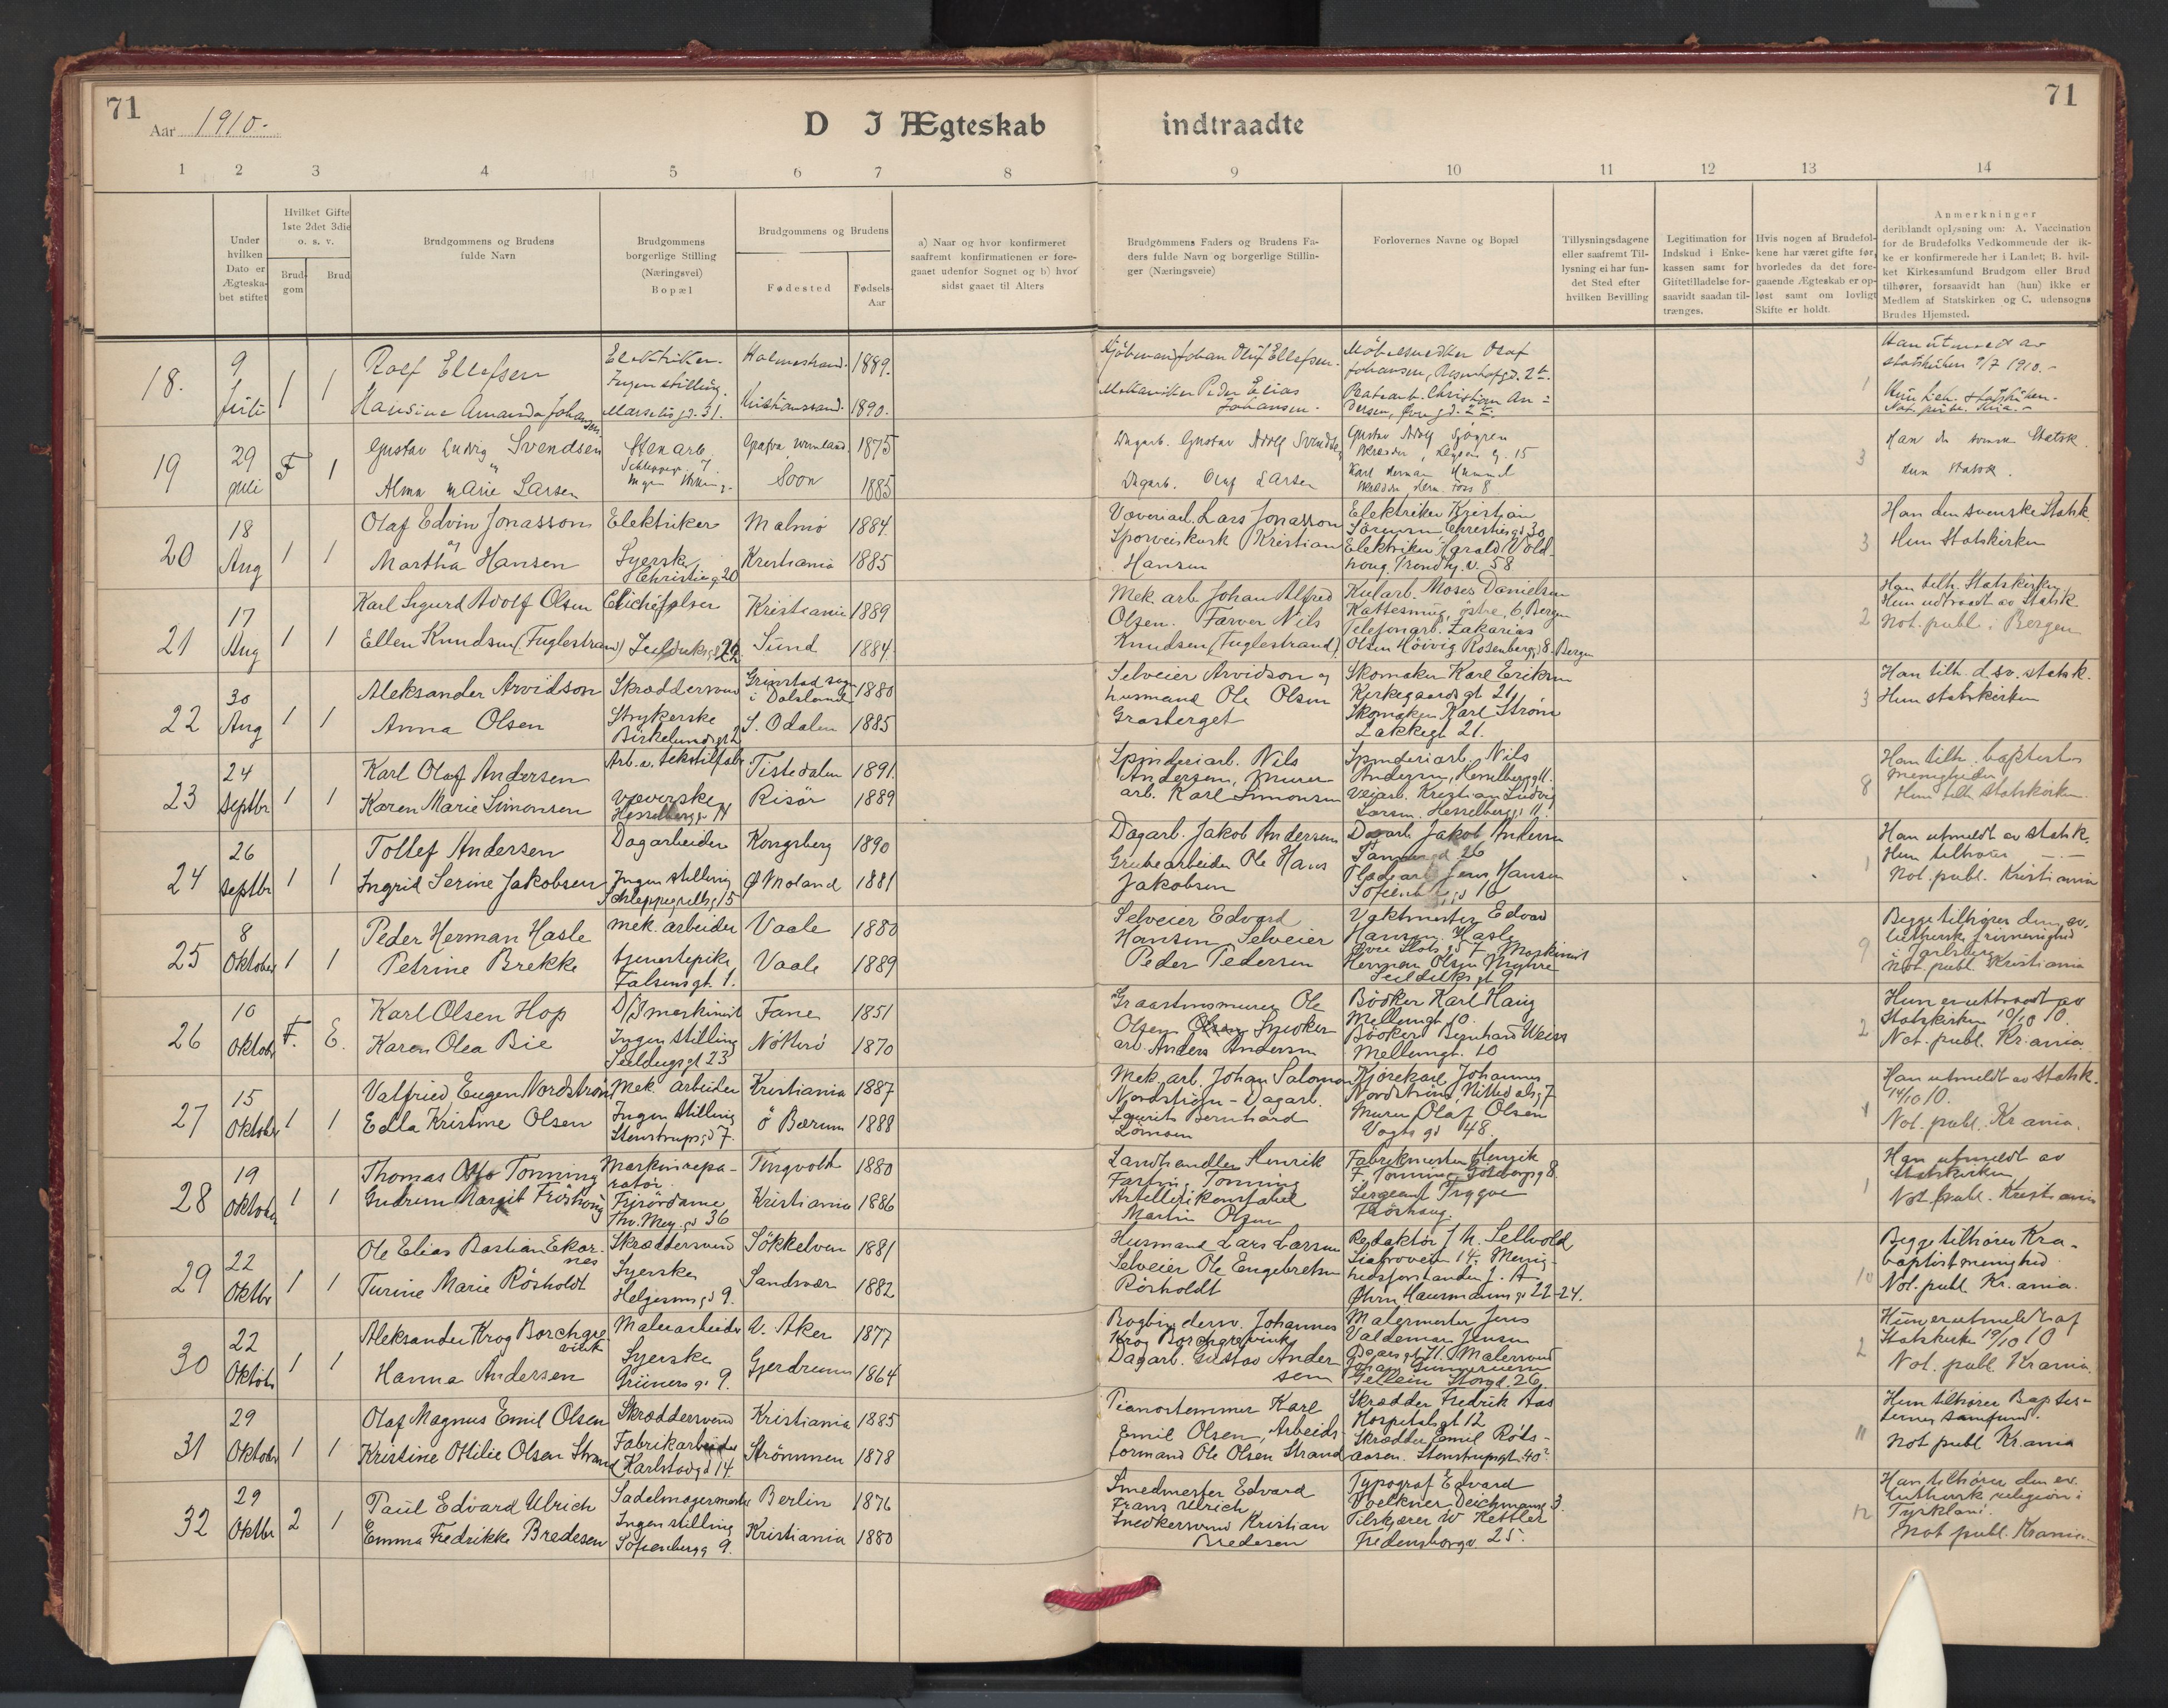 71
Aar 1910.
D I Ægteskab
indtraadte
71
1 2 3 4 5 6 7 8 9 10 11 12 13 14
Under hvilken Dato er Ægteska-bet stiftet
Hvilket Gifte 1ste 2det 3die o. s. v.
Brud-gom
Brud
Brudgommens og Brudens fulde Navn
Brudgommens borgerlige Stilling (Næringsvei) Bopæl
Brudgommens og Brudens
Fødested
Fødsels-Aar
a) Naar og hvor konfirmeret saafremt konfirmationen er fore-gaaet udenfor Sognet og b) hvor sidst gaaet til Alters
Brudgommens Faders og Brudens Fa-ders fulde Navn og borgerlige Stillin-ger (Næringsveie)
Forlovernes Navne og Bopæl
Tillysningsdagene eller saafremt Til-lysning ei har fun-det Sted efter hvilken Bevilling
Legitimation for Indskud i Enke-kassen samt for Giftetilladelse for-saavidt saadan til-trænges.
Hvis nogen af Brudefol-kene har været gifte før, hvorledes da det fore-gaaende Ægteskab er op-løst samt om lovligt Skifte er holdt.
Anmerkninger
deriblandt oplysning om: A. Vaccination for de Brudefolks Vedkommende der ik-ke er konfirmerede her i Landet; B. hvil-ket Kirkesamfund Brudgom eller Brud tilhører, forsaavidt han (hun) ikke er Medlem af Statskirken og C. udensogns Brudes Hjemsted.
18. 9 Juli 1 1
Rolf Ellefsen Elektriker. Holmestrand. 1889.
Hansine Amanda Johansen. Ingen stilling Marselis gd. 31. Kristianssand. 1890.
Kjøbmand Johan Oluf Ellefsen.
Mekaniker Peder Elias Johansen.
Møbelsnedker Olaf Johansen,
Han utmeldt av statskirken 9/7 1910.
1
19 29 Juli F 1
Gustav Ludvig Svendsen Sten arb. 1875
Alma Marie Larsen Soon 1885
Dagarb. Gustav Adolf Svendsen
Dagarb. Oluf Larsen
Gustav Adolf Sjögren
3
Han den svenske Statsk.
Hun Statsk.
20 18 Aug 1 1
Olaf Edvin Jonasson Elektriker Malmö 1884.
og
Martha Hansen Syerske Christieg. 20 Kristiania 1885
Væveriarb. Lars Jonasson
Sporveiskusk Kristian Hansen
Elektriker Kristian Sörensen Christiesgd 30
Elektriker Harald Vold-houg, Trondhj.v. 58
3
Han den svenske Statsk.
Hun Statskirken
21 17 Aug 1 1
Karl Sigurd Adolf Olsen Clichéfølser Kristiania 1889
Ellen Knudsen (Fuglestrand) Seilduksgd Sund 1884.
Mek. arb. Johan Alfred Olsen. Farver Nils Knudsen (Fuglestrand).
Kularb. Moses Danielsen Kattesmug, östre, 6, Bergen
Telefonarb. Zakarias Olsen Höivig Rosenbergg. 8. Bergen
2
Han tilh. Statskirken
Hun udtraadt av Statsk.
Not. publ. i Bergen
22 30 Aug 1 1
Aleksander Arvidson Skræddersvend Grinstad sogn i Dalsland 1880
Anna Olsen Strykerske Birkelundsgt 2 S. Odalen 1885
Selveier Arvidson og husmand Ole Olsen Grasberget
Skomaker Karl Eriksen Kirkegaardsgt 21,
Skomaker Karl Strøm Lakkegt 21.
3
Han tilh. d. sv. statsk.
Hun statskirken
23 24 Septbr 1 1
Karl Olaf Andersen Arb. v. tekstilfabr. Tistedalen 1891.
Karen Marie Simonsen Væverske Hesselbergg. 11 Risör 1889
Spinderiarb. Nils Andersen, murer arb. Karl Simonsen
Spinderiarb. Nils Andersen, Hesselbergg 11.
Veiarb. Kristian Ludvig Larsen. Hesselbergg. 11.
8
Han tilh. baptist menigheden,
Hun tilh. Statskirken.
24 26 Septbr 1 1
Tollef Andersen Dagarbeider Kongsberg 1890
Ingrid Serine Jakobsen Ingen stilling Schleppegrellsg. 15 Ø Moland 1881
Dagarb. Jakob Andersen
Grubearbeider Ole Hans Jakobsen
Dagarb. Jakob Andersen
Jens Hansen
1
Han utmeldt av statsk.
Hun tilhører —.—
Not. publ. Kristiania
25 8 Oktober 1 1
Peder Herman Hasle Mek. arbeider Vaale 1880
Petrine Brekke tjenestepike Falsensgt. 1. Vaale 1889
Selveier Edvard Hansen. Selveier Peder Pedersen
Vaktmester Edvard Hansen Hasle Övre Slotsgd 7. Maskinist
Herman Olsen Myhre Seilduksgt 9
9
Begge tilhører den ev. lutherske frimenighed i Jarlsberg
Not. publ. Kristiania
26 10 Oktobr F. E.
Karl Olsen Hop D/S maskinist Fane 1851
Karen Olea Bie Ingen stilling Seildugsgt 23 Nötterö 1870
Graastensmurer Ole Olsen Snedker arb. Anders Andersen
Bödker Karl Haug Mellemgt 10.
Bödker Bernhard Weiss Mellemgt. 10
2
Hun er uttraadt av Statskirken 10/10 10.
Not. publ. Kr.ania.
27 15 Oktobr 1 1
Valfried Eugen Nordström Mek arbeider Kristiania 1887
Edla Kristine Olsen Ingen stilling Stenstrupsgd 7. Ö Bærum 1888
Mek. arb. Johan Salomon Nordström - Dagarb. Laurits Bernhard
Kjørekarl Johannes Nordström, Nittedalsg. 7
Murer Olaf Olsen Vogtsgd 48
1
Han utmeldt av Statsk. 14/10 10.
Not. publ. Kr.ania.
28 19 Oktobr 1 1
Thomas Otto Tonning Maskinrepa-ratør Tingvold 1880
Gudrun Margit Fröshoug Frisördame Th. Mey.gd 36 Kristiania 1886
Landhandler Henrik Tonning
Artillerikonstabel Martin Olsen
Fabrikmester Henrik F. Tonning, Göteborgg. 8.
Sergeant Trygve Fröshaug.
1
Han utmeldt av Statskirken
Not. publ. Kristiania
29 22 Oktbr 1 1
Ole Elias Bastian Ekor-nes Skræddersvend Sökkelven 1881
Turine Marie Rösholdt Syerske Helgesensgd 9. Sandsvær 1882
Husmand Lars Larsen
Selveier Ole Engebretsen Rösholdt
Redaktør J. M. Sellevold 14. Menig-hedsforstander J. A. Öhrn Hausmannsg. 22-24.
10
Begge tilhører Kra. baptistmenighed.
Not. publ. Kr.ania.
30 22 Oktobr 1 1
Aleksander Krog Borchgre vink Malerarbeider V. Aker 1877
Hanna Andersen Syerske Grünersg. 9. Gjerdrum 1864
Bogbindersv. Johannes Krog Borchgrevink
Dagarb. Gustav Ander sen
Malermester Jens Valdemar Jensen
Malersvend Gellein Storgd. 26.
2
Hun er utmeldt af Statskirke 19/10 10
Not. publ. Krania
31 29 Oktobr 1 1
Olaf Magnus Emil Olsen Skræddersvend Kristiania 1885
Kristine Otilie Olsen Strand Fabrikarbeider Karlstadgd 14. Strömmen 1878
Pianostemmer Karl Emil Olsen, Arbeids-formand Ole Olsen Strand
Skrædder Fredrik Aas Hospitalsgt 12
Skrædder Emil Röds-aasen. Stenstrupsgt. 40²
11
Hun tilhører Baptis-ternes samfund.
Not publ Kr.ania
32 29 Oktbr 2 1
Paul Edvard Ulrich Sadelmagermester Berlin 1876
Emma Fredrikke Bredesen Ingen stilling Sofienbergg 9. Kristiania 1880
Smedmester Edvard Franz Ulrich
Snedkersvend Kristian Bredesen
Typograf Edvard Voelkner Deichmansg 3.
Tilskjærer W Kettler Fredensborgv. 25.
12
Han tilhører den ev. luthersk religion i Tyskland.
Not publ. Krania.